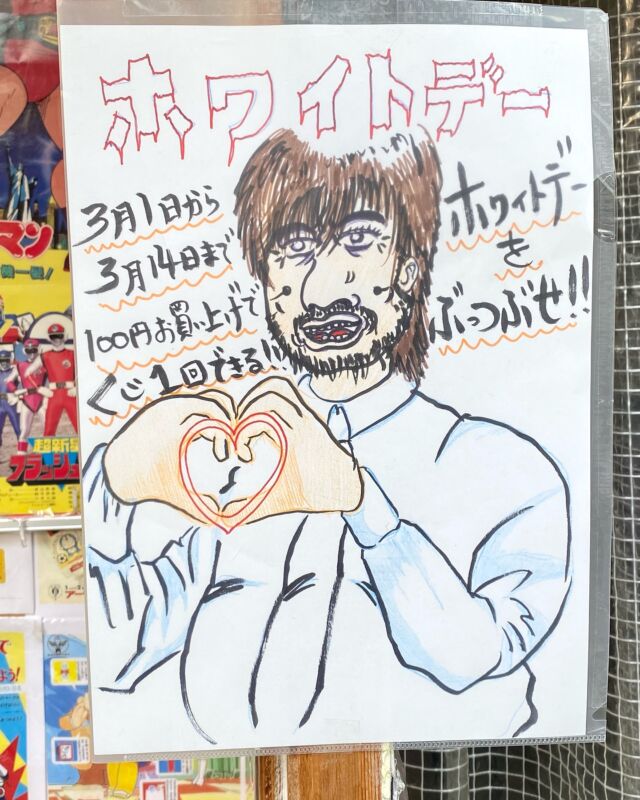 ホワイトデー
3月1日から
3月14日まで
100円お買い上げで
くじ1回できる!!
ホワイトデー
を
ぶっつぶせ!!
マン
機一髪!
超新星
フラッシュ